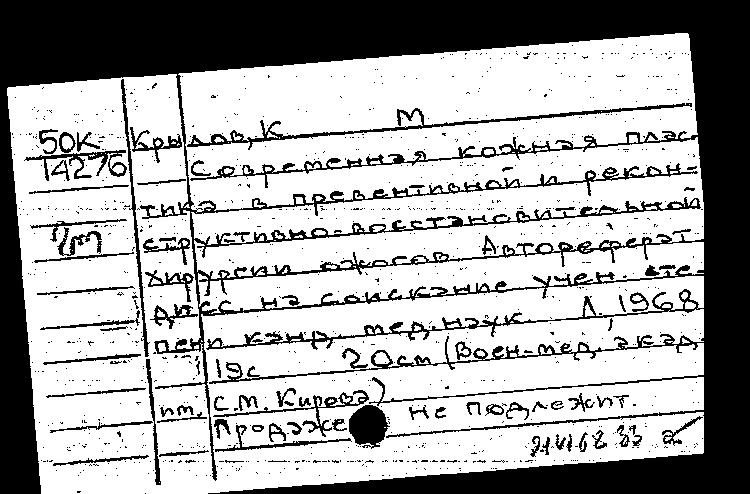 50К Крылов, К М
14276 Современная кожная плас-
тика в превентивной и рекон-
структивно-восстановительной
хирургии ожогов. Автореферат
дисс. на соискание учен. сте-
пени канд. мед. наук. Л, 1968
19с 20см (Воен-мед. акад.
им. С.М. Кирова).
Продаже не подлежит.